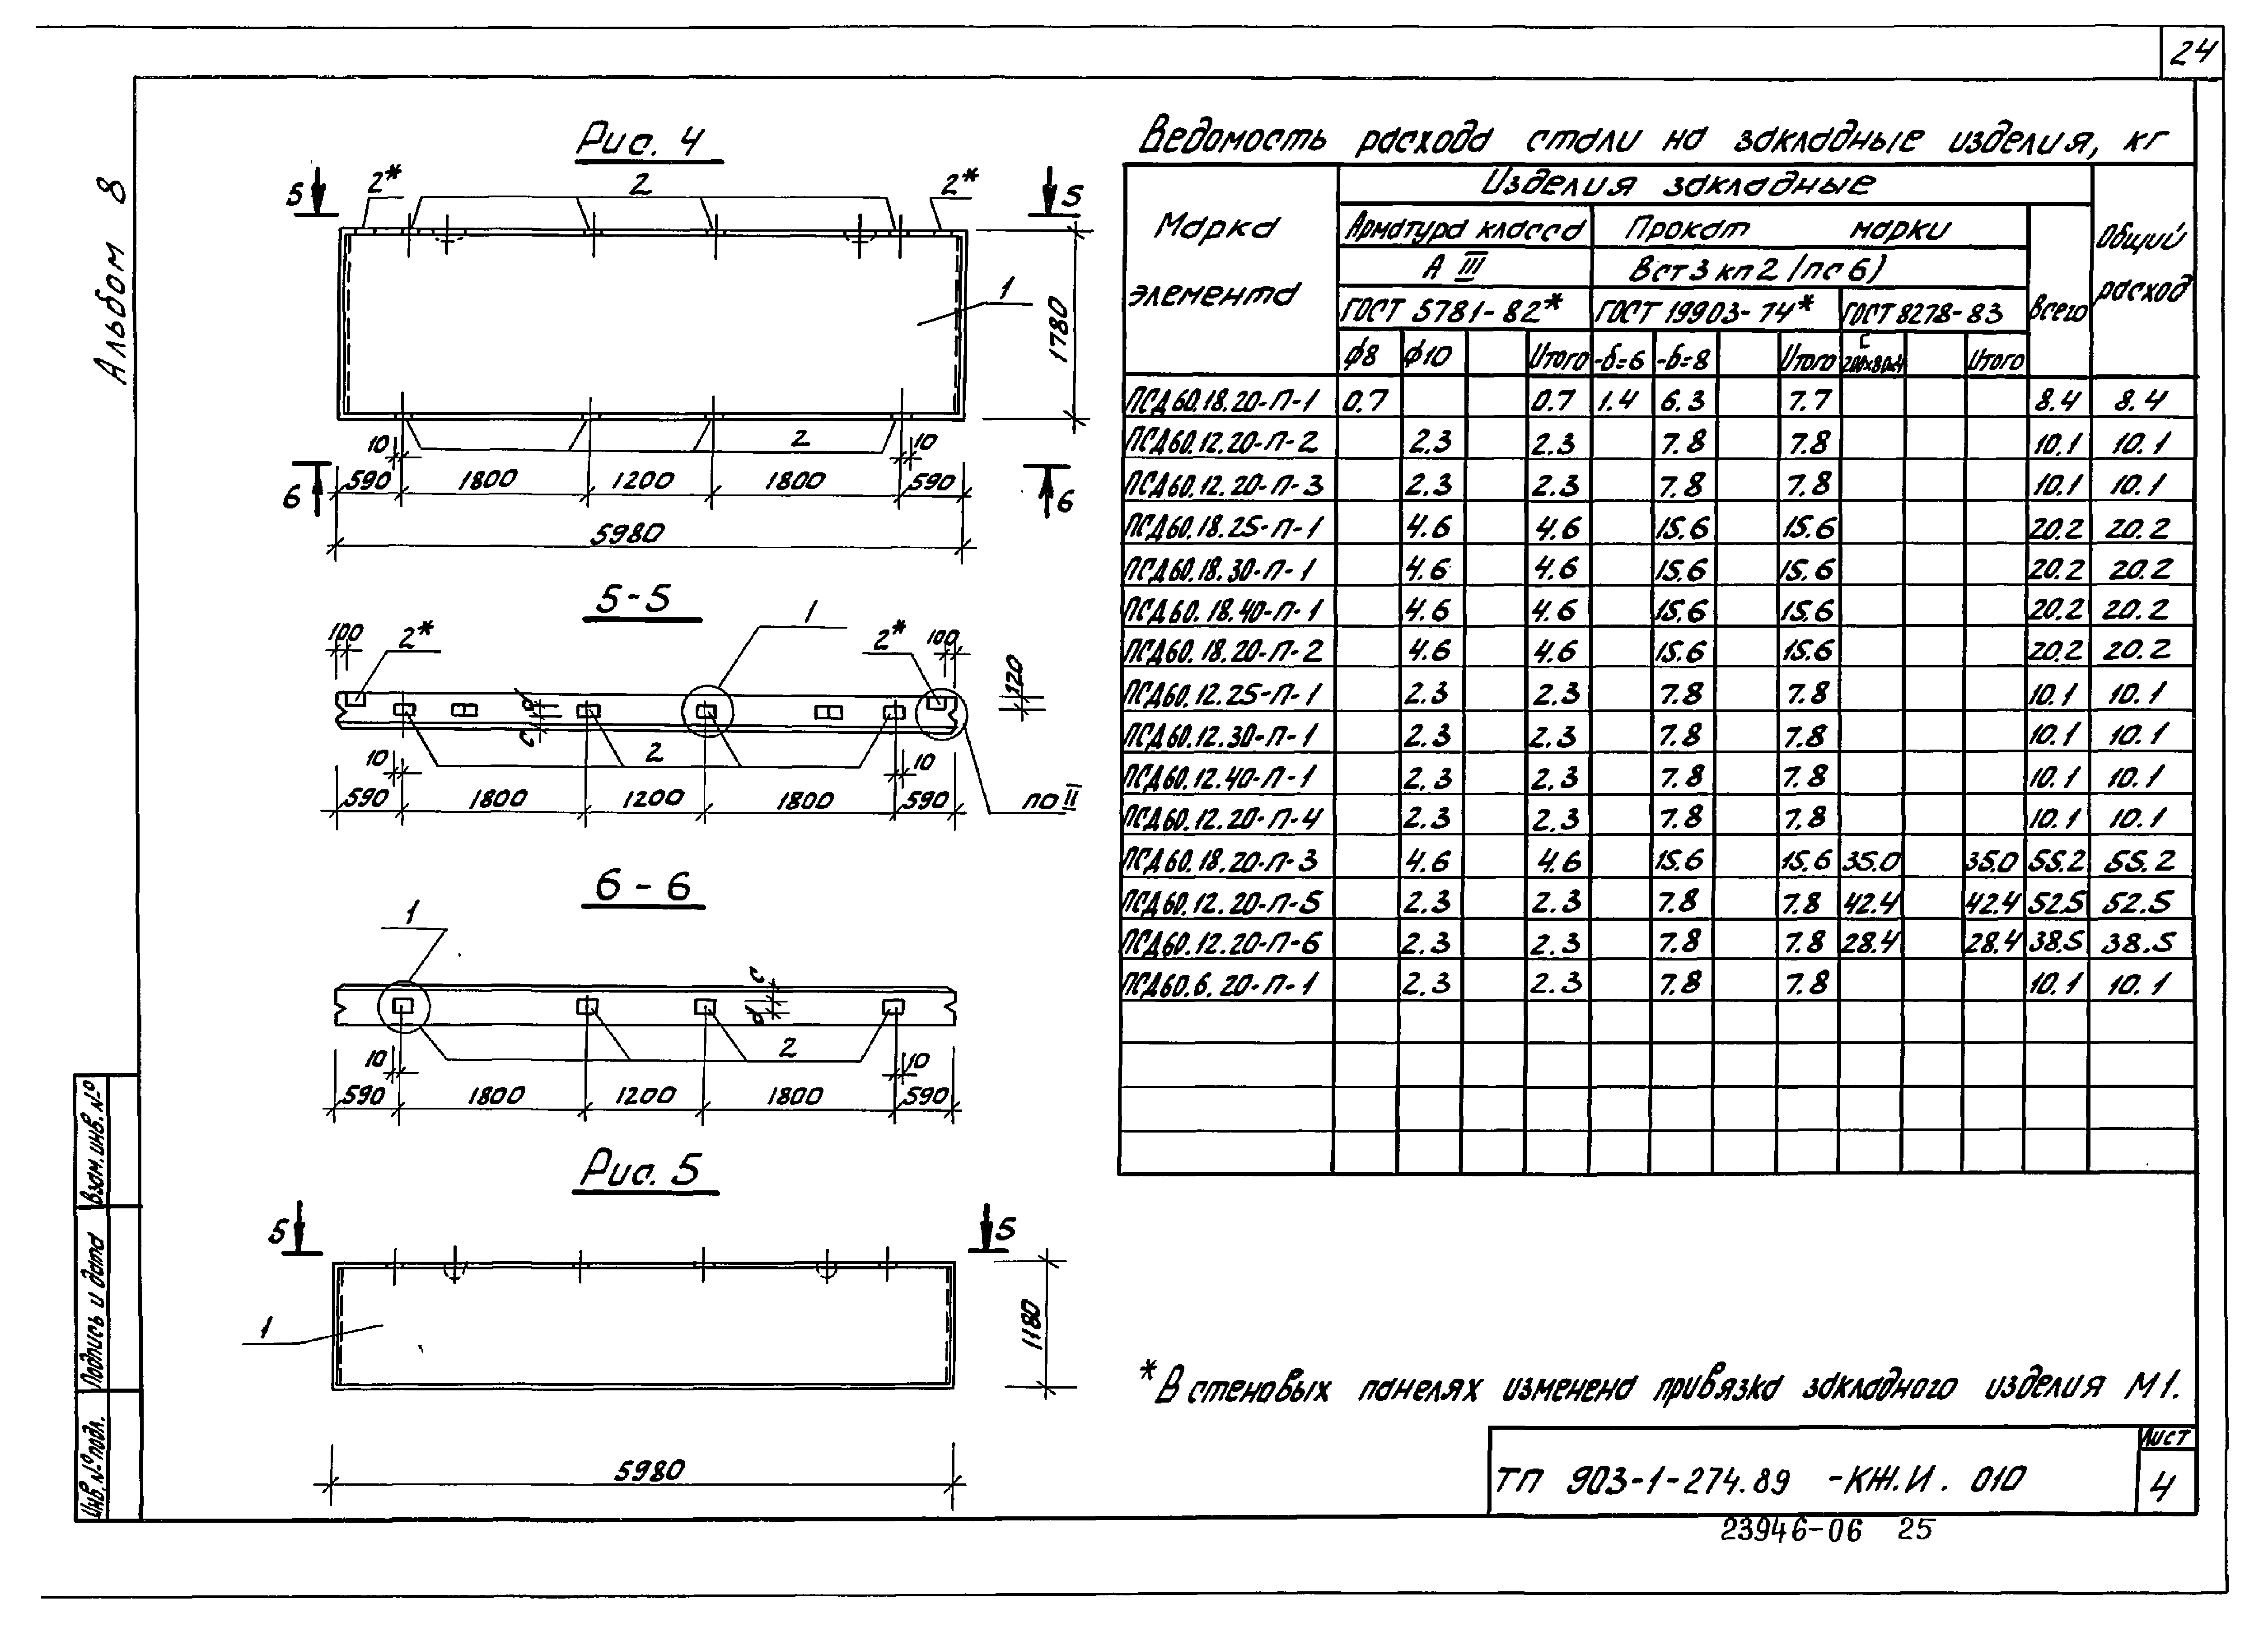 24
Альбом 8
Рис. 4
5 2* 2 2* 5
1
1780
10 2 10
590 1800 1200 1800 590
6 6
5980
5-5
100 2* 1 2* 100
120
d
c
10 2 10
590 1800 1200 1800 590 по II
6-6
1
c
d
10 2 10
590 1800 1200 1800 590
Рис. 5
5 5
1
1180
5980
Ведомость расхода стали на закладные изделия, кг
Марка элемента
Изделия закладные
Общий расход
Арматура класса
Прокат марки
Всего
А III
Вст3 кп2 (пс6)
ГОСТ 5781-82* ГОСТ 19903-74* ГОСТ 8278-83
ф8 ф10 Итого -δ=6 -δ=8 Итого С 200х80х4 Итого
ПСД60.18.20-П-1 0.7 0.7 1.4 6.3 7.7 8.4 8.4
ПСД60.12.20-П-2 2.3 2.3 7.8 7.8 10.1 10.1
ПСД60.12.20-П-3 2.3 2.3 7.8 7.8 10.1 10.1
ПСД60.18.25-П-1 4.6 4.6 15.6 15.6 20.2 20.2
ПСД60.18.30-П-1 4.6 4.6 15.6 15.6 20.2 20.2
ПСД60.18.40-П-1 4.6 4.6 15.6 15.6 20.2 20.2
ПСД60.18.20-П-2 4.6 4.6 15.6 15.6 20.2 20.2
ПСД60.12.25-П-1 2.3 2.3 7.8 7.8 10.1 10.1
ПСД60.12.30-П-1 2.3 2.3 7.8 7.8 10.1 10.1
ПСД60.12.40-П-1 2.3 2.3 7.8 7.8 10.1 10.1
ПСД60.12.20-П-4 2.3 2.3 7.8 7.8 10.1 10.1
ПСД60.18.20-П-3 4.6 4.6 15.6 15.6 35.0 35.0 55.2 55.2
ПСД60.12.20-П-5 2.3 2.3 7.8 7.8 42.4 42.4 52.5 52.5
ПСД60.12.20-П-6 2.3 2.3 7.8 7.8 28.4 28.4 38.5 38.5
ПСД60.6.20-П-1 2.3 2.3 7.8 7.8 10.1 10.1
* В стеновых панелях изменена привязка закладного изделия М1.
ТП 903-1-274.89 -КЖ.И. 010
Лист
4
23946-06 25
Взам.инв.№
Подпись и дата
Инв.№подл.